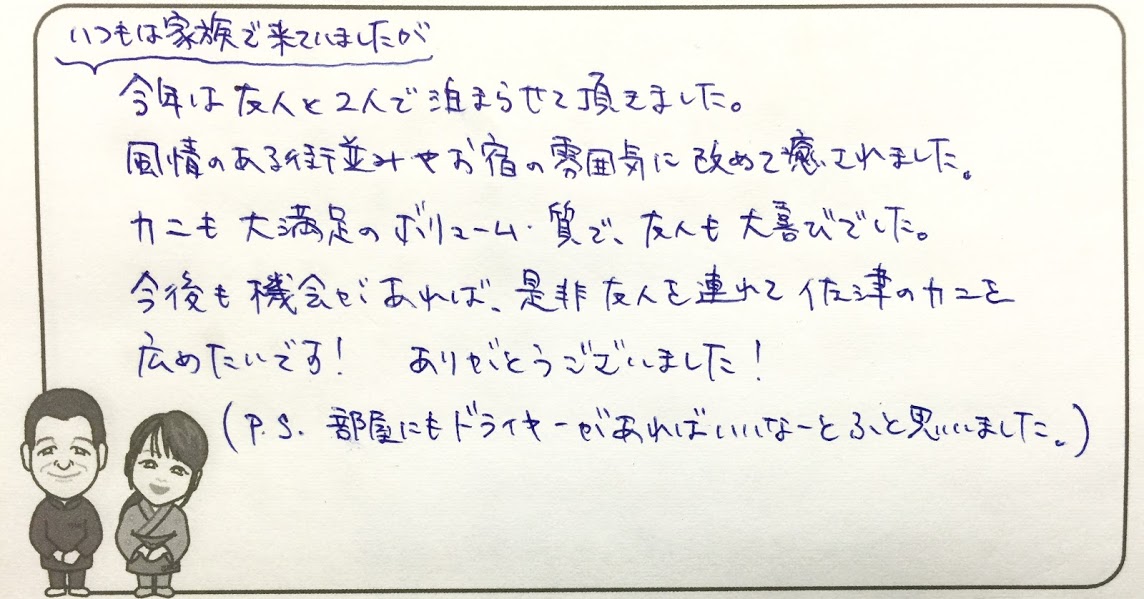 いつもは家族で来ていましたが
今年は友人と2人で泊まらせて頂きました。
風情のある街並みやお宿の雰囲気に改めて癒されました。
カニも大満足のボリューム・質で、友人も大喜びでした。
今後も機会があれば、是非友人を連れて佐津のカニを
広めたいです! ありがとうございました!
(P.S. 部屋にもドライヤーがあればいいなーとふと思いました。)